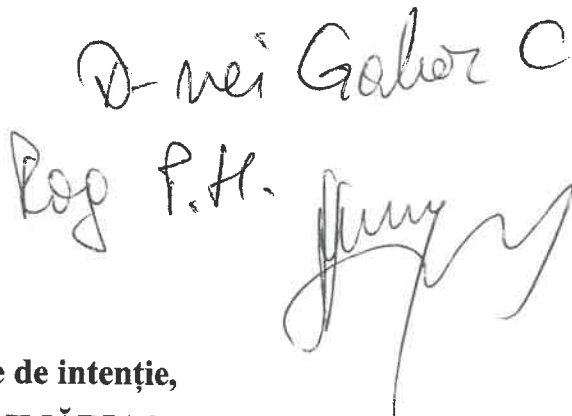 D-nei Gabor C
Rog P.H.
e de intenție,